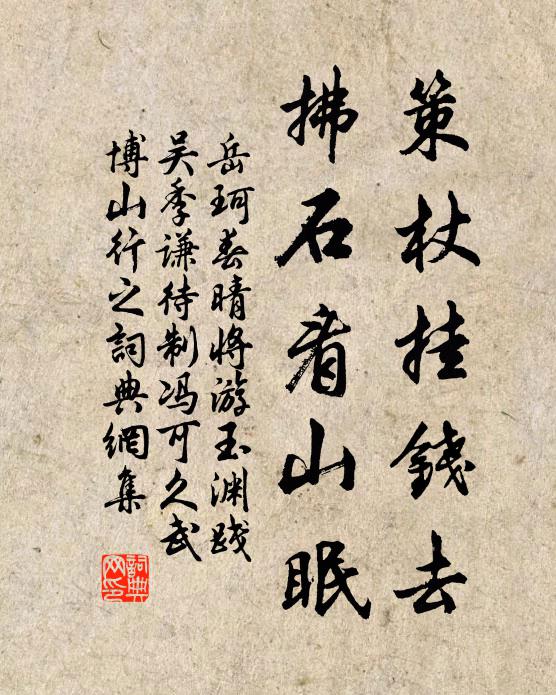 策杖挂錢去
拂石看山眠
岳珂春晴將游玉淵踐
吴季謙待制冯可久武
博山行之詞典網集
詞典网印